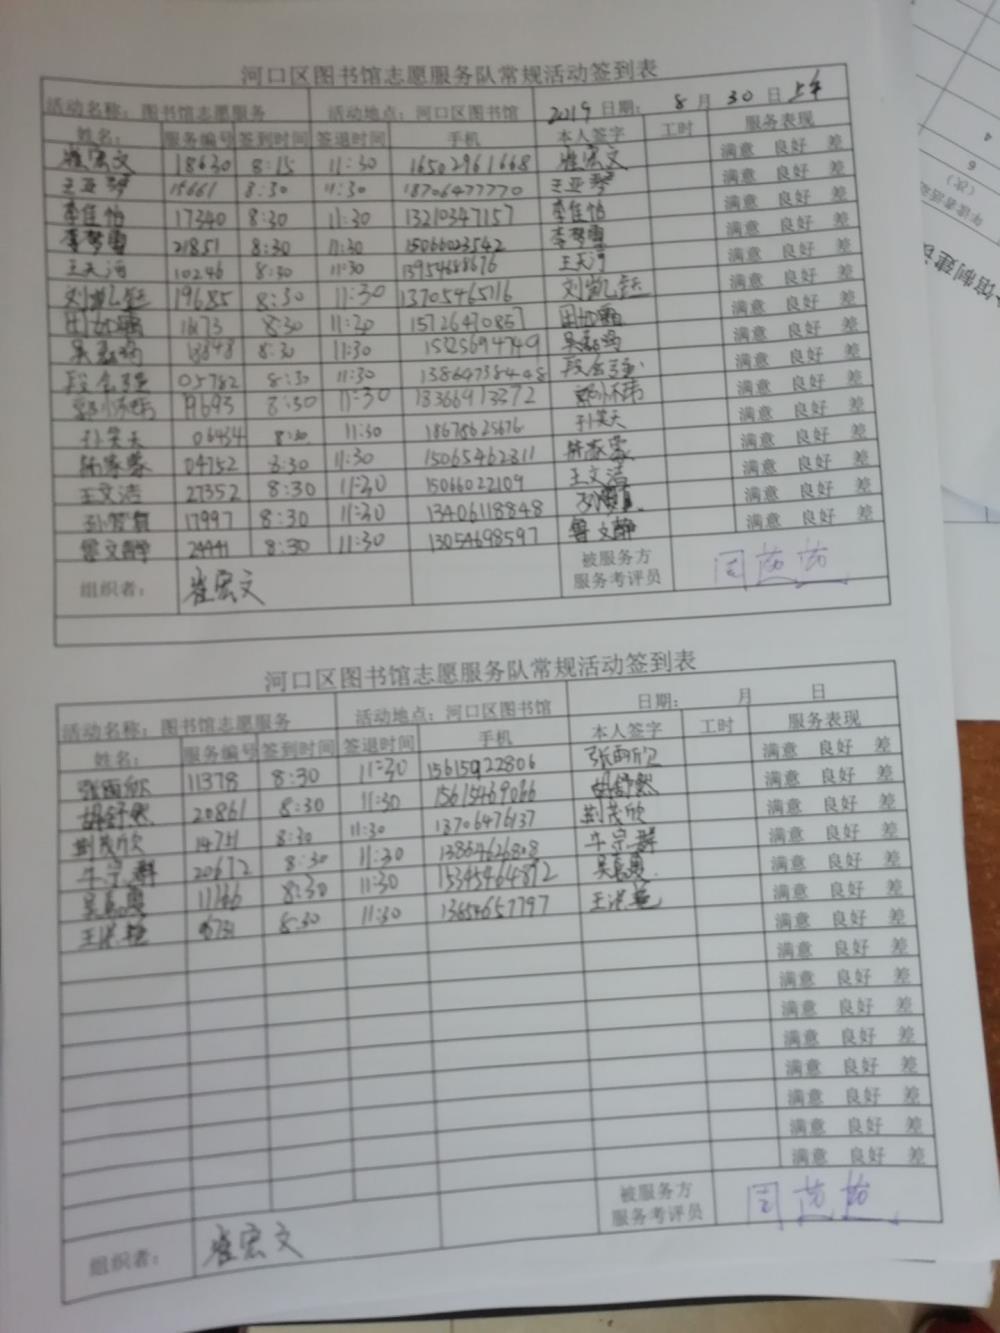 河口区图书馆志愿服务队常规活动签到表
活动名称：图书馆志愿服务 活动地点：河口区图书馆 2019 日期： 8 月 30 日 上午
姓名： 服务编号 签到时间 签退时间 手机 本人签字 工时 服务表现
崔宏文 18630 8:15 11:30 16502961668 崔宏文 满意 良好 差
王亚琴 15661 8:30 11:30 18706477770 王亚琴 满意 良好 差
李佳怡 17340 8:30 11:30 13210347157 李佳怡 满意 良好 差
李梦雪 21851 8:30 11:30 15066023542 李梦雪 满意 良好 差
王天河 10246 8:30 11:30 13954688676 王天河 满意 良好 差
刘凯钰 19685 8:30 11:30 13705465116 刘凯钰 满意 良好 差
8:30 11:30 15726470857 满意 良好 差
8:30 11:30 15325694749 满意 良好 差
05782 8:30 11:30 13864738448 满意 良好 差
19693 8:30 11:30 满意 良好 差
孙笑天 06434 8:30 11:30 18678625676 孙笑天 满意 良好 差
04752 8:30 11:30 15065462311 满意 良好 差
王文洁 27352 8:30 11:30 15066022109 王文洁 满意 良好 差
17997 8:30 11:30 13406118848 满意 良好 差
曾文静 24441 8:30 11:30 13054698597 曾文静 满意 良好 差
组织者： 崔宏文 被服务方
服务考评员 周茵茵
河口区图书馆志愿服务队常规活动签到表
活动名称：图书馆志愿服务 活动地点：河口区图书馆 日期： 月 日
姓名： 服务编号 签到时间 签退时间 手机 本人签字 工时 服务表现
张雨欣 11378 8:30 11:30 15615922806 张雨欣 满意 良好 差
胡舒然 20861 8:30 11:30 15615469066 胡舒然 满意 良好 差
荆茂欣 14751 8:30 11:30 18706476137 荆茂欣 满意 良好 差
牛宗群 20672 8:30 11:30 13864626808 牛宗群 满意 良好 差
11166 8:30 11:30 15345464872 满意 良好 差
王洪艳 8:30 11:30 13654657797 王洪艳 满意 良好 差
满意 良好 差
满意 良好 差
满意 良好 差
满意 良好 差
满意 良好 差
满意 良好 差
满意 良好 差
满意 良好 差
满意 良好 差
组织者： 崔宏文 被服务方
服务考评员 周茵茵